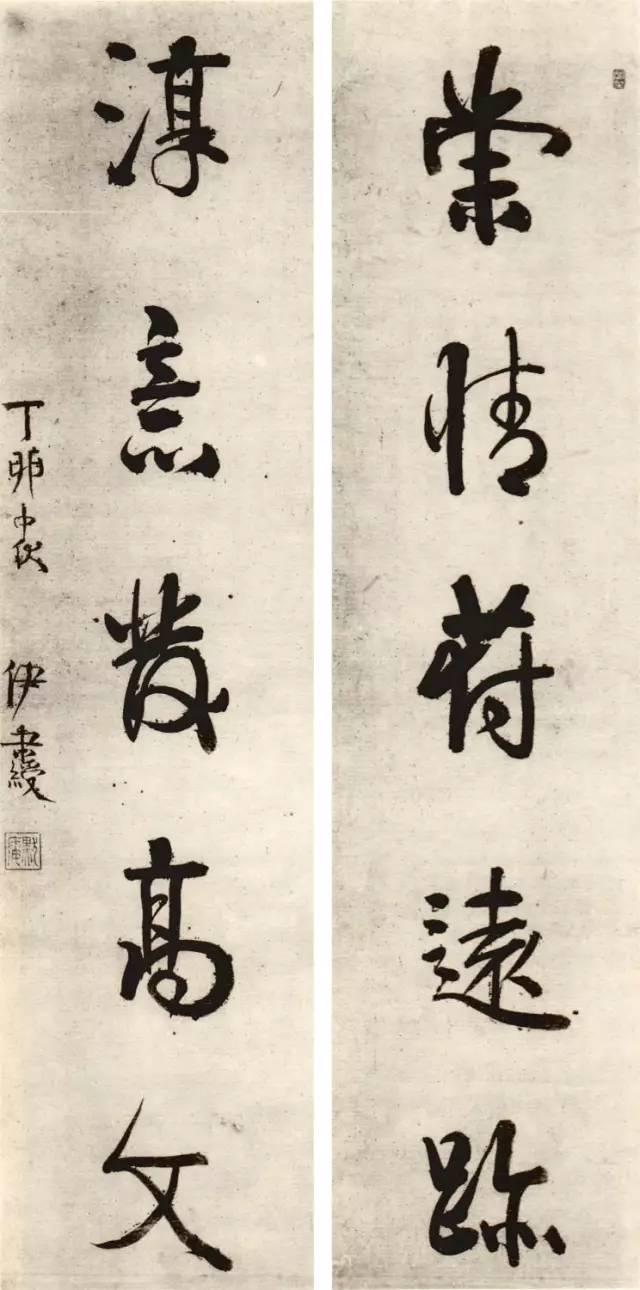 崇情符遠跡
淳意發高文
丁卯中伏 伊秉綬
默庵